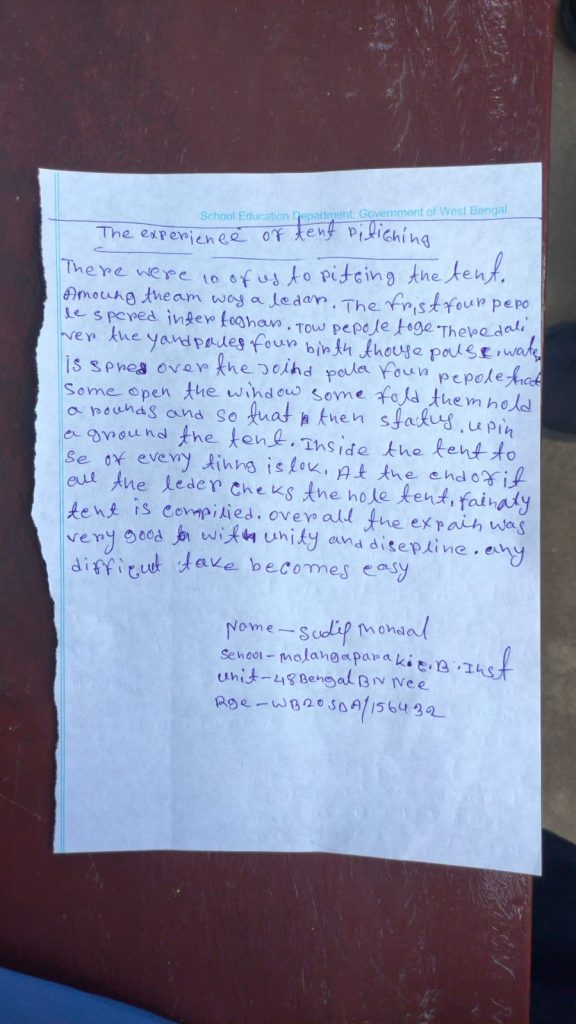 School Education Department, Government of West Bengal
The experience of tent pitiching
There were 10 of us to pitcing the tent.
Amoung theam was a ledar. The frist four pepo
le spcred inter toghar. Tow pepole toge There dali
ver the yandpales four birth those palse. water
is spred over the Joind pala four pepole that
some open the window some fold them hold
a rounds and so that then status. upin
a ground the tent. Inside the tent to
se of every tinng is lok. At the end of it
all the leder cheks the hole tent, fainaty
tent is compilied. over all the expain was
very good with unity and disepline. any
difficut take becomes easy
Name - Sudip Mondal
School - malangapara k.c.B. Inst
unit - 48 Bengal BN Ncc
Rge - WB20SDA/156432